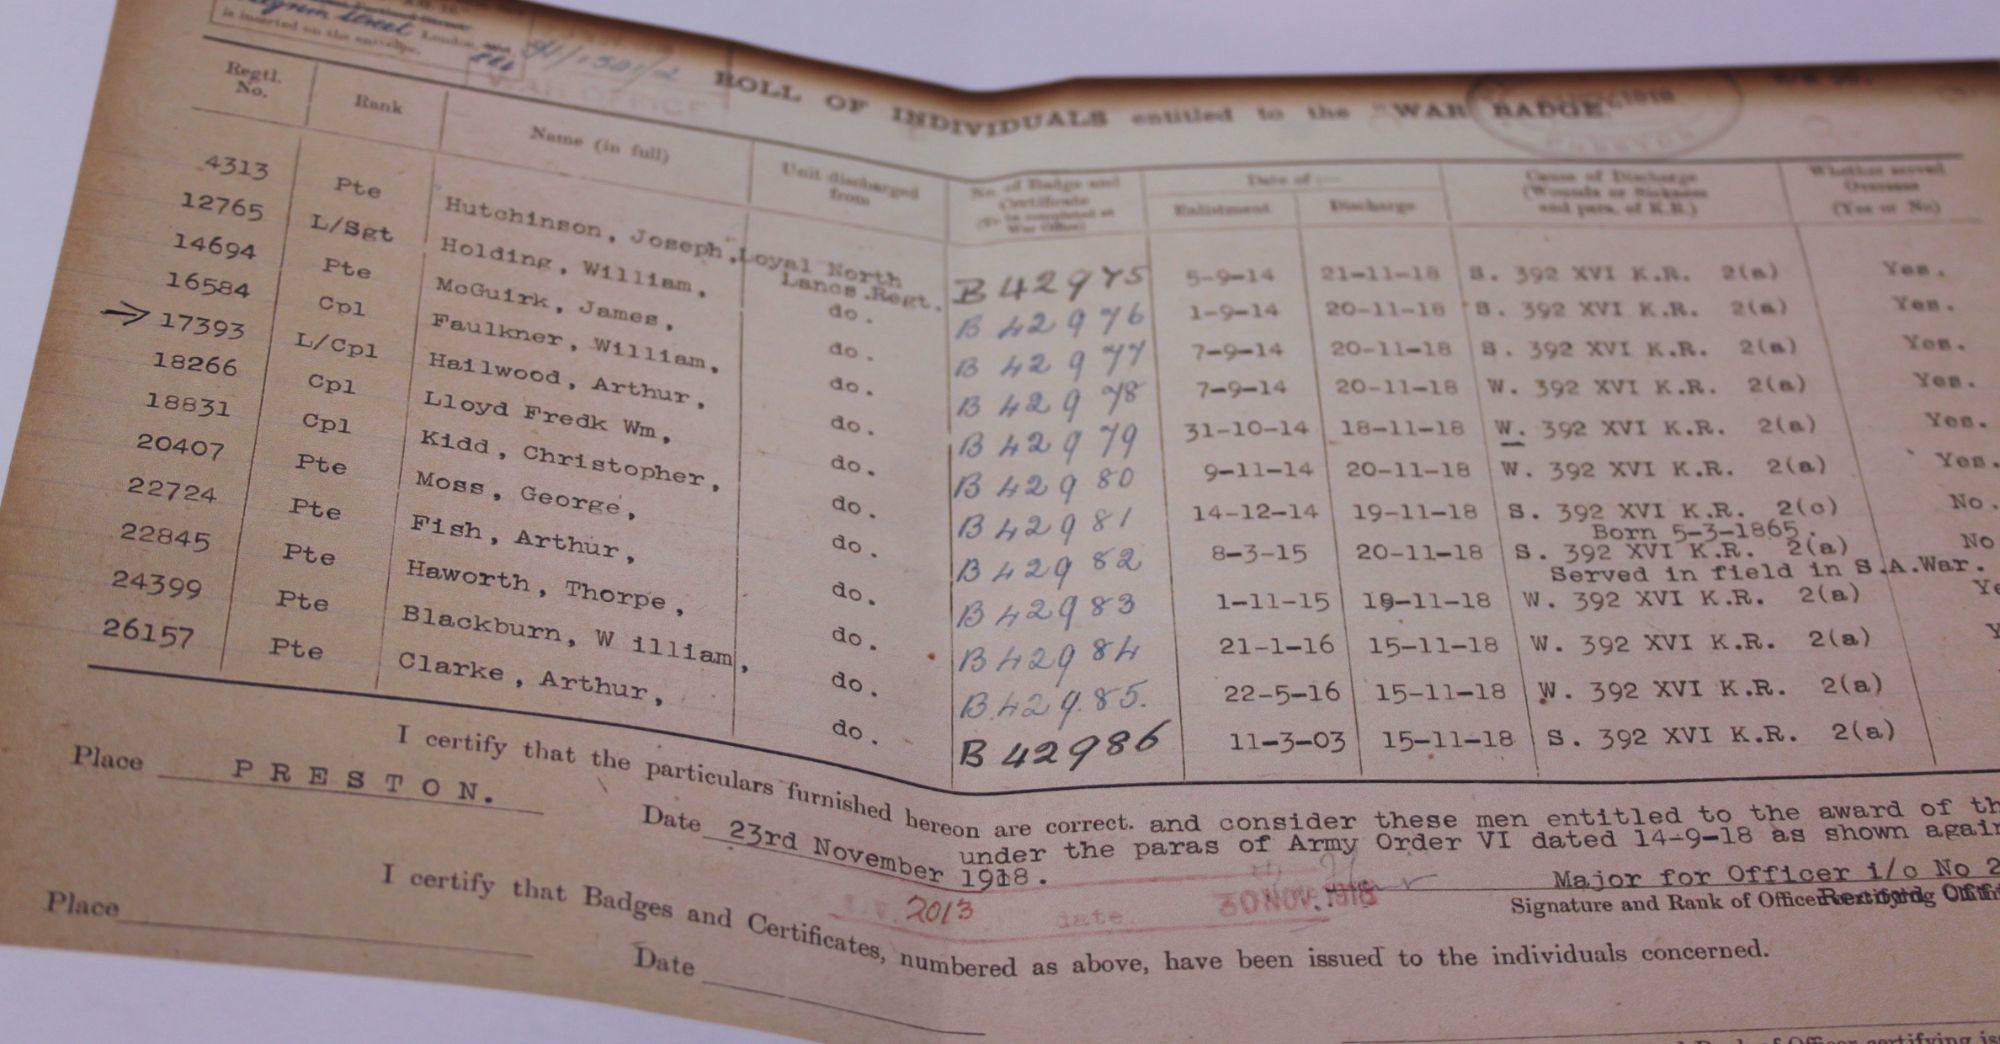 is inserted on the envelope.
ROLL OF INDIVIDUALS entitled to the "WAR BADGE."
Regtl. No. Rank Name (in full) Unit discharged from No. of Badge and Certificate (To be completed at War Office) Date of :— Enlistment Discharge Cause of Discharge (Wounds or Sickness and para. of K.R.) Whether served Overseas (Yes or No)
4313 Pte Hutchinson, Joseph, Loyal North Lancs.Regt. B 42975 5-9-14 21-11-18 S. 392 XVI K.R. 2(a) Yes.
12765 L/Sgt Holding, William, do. B 42976 1-9-14 20-11-18 S. 392 XVI K.R. 2(a) Yes.
14694 Pte McGuirk, James, do. B 42977 7-9-14 20-11-18 S. 392 XVI K.R. 2(a) Yes.
16584 Cpl Faulkner, William, do. B 42978 7-9-14 20-11-18 W. 392 XVI K.R. 2(a) Yes.
→ 17393 L/Cpl Hailwood, Arthur, do. B 42979 31-10-14 18-11-18 W. 392 XVI K.R. 2(a) Yes.
18266 Cpl Lloyd Fredk Wm, do. B 42980 9-11-14 20-11-18 W. 392 XVI K.R. 2(a) Yes.
18831 Cpl Kidd, Christopher, do. B 42981 14-12-14 19-11-18 S. 392 XVI K.R. 2(c) No.
Born 5-3-1865.
20407 Pte Moss, George, do. B 42982 8-3-15 20-11-18 S. 392 XVI K.R. 2(a) No
Served in field in S.A.War.
22724 Pte Fish, Arthur, do. B 42983 1-11-15 19-11-18 W. 392 XVI K.R. 2(a) Ye
22845 Pte Haworth, Thorpe, do. B 42984 21-1-16 15-11-18 W. 392 XVI K.R. 2(a) Y
24399 Pte Blackburn, W illiam, do. B.42985. 22-5-16 15-11-18 W. 392 XVI K.R. 2(a)
26157 Pte Clarke, Arthur, do. B 42986 11-3-03 15-11-18 S. 392 XVI K.R. 2(a)
I certify that the particulars furnished hereon are correct. and consider these men entitled to the award of th
under the paras of Army Order VI dated 14-9-18 as shown again
Place PRESTON. Date 23rd November 1918.
Major for Officer i/c No 2
2013 date 30 NOV. 1918
Signature and Rank of Officer
I certify that Badges and Certificates, numbered as above, have been issued to the individuals concerned.
Place Date